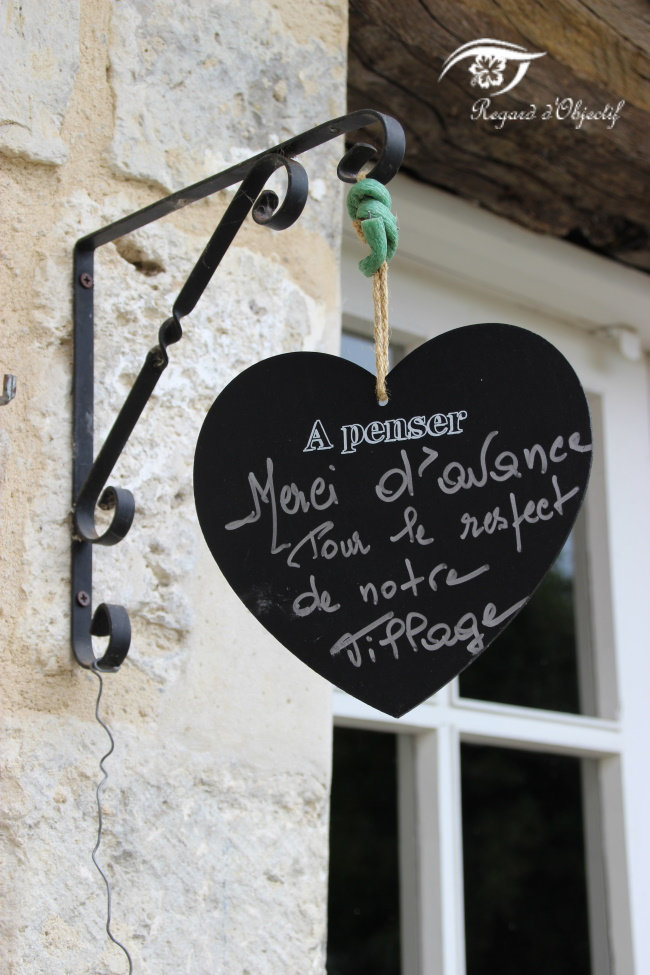 Regard d'Objectif
A penser
Merci d'avance
Pour le respect
de notre
Village